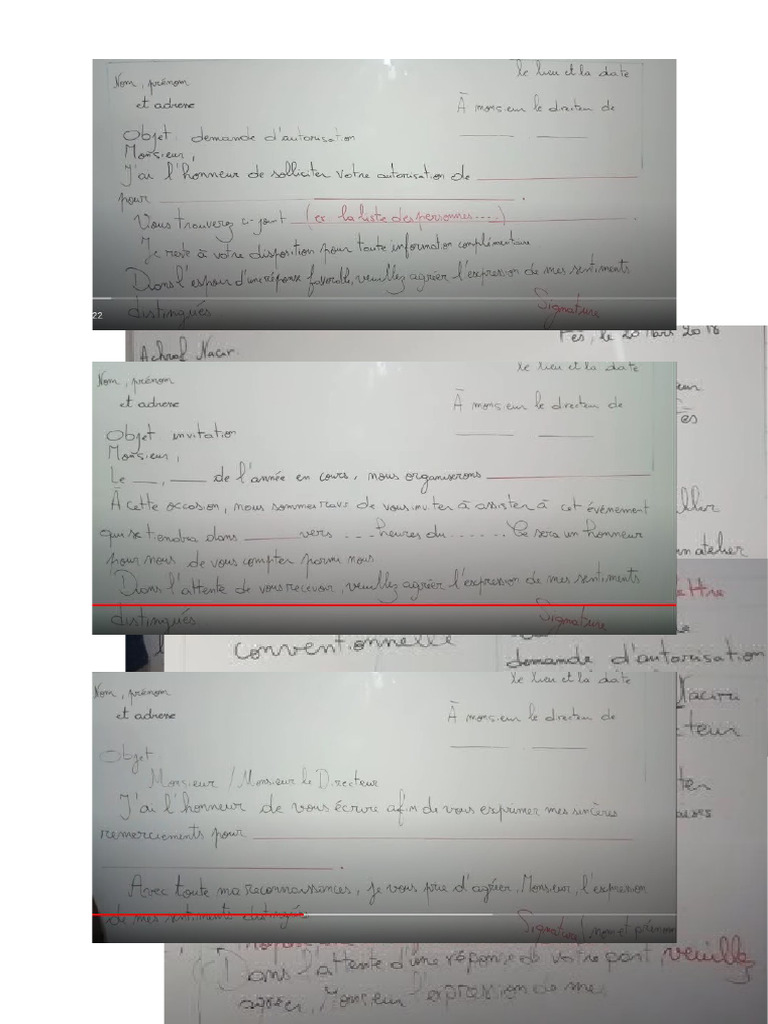 le lieu et la date
Nom, prénom
et adresse
À monsieur le directeur de
Objet : demande d'autorisation
Monsieur,
J'ai l'honneur de solliciter votre autorisation de
pour
Vous trouverez ci-joint (ex la liste des personnes....)
Je reste à votre disposition pour toute information complémentaire
Dans l'espoir d'une réponse favorable, veuillez agréer l'expression de mes sentiments
distingués Signature
22
Fès, le 20 Mars 2018
Achraf Nacir
le lieu et la date
Nom, prénom
et adresse
À monsieur le directeur de
Objet invitation
Monsieur,
Le __, ___ de l'année en cours, nous organiserons
À cette occasion, nous sommes ravis de vous inviter à assister à cet événement
qui se tiendra dans ______ vers ... heures du ....... Ce sera un honneur
pour nous de vous compter parmi nous
Dans l'attente de vous recevoir, veuillez agréer l'expression de mes sentiments
distingués Signature
conventionnelle
demande d'autorisation
le lieu et la date
Nom, prénom
et adresse
À monsieur le directeur de
Objet
Monsieur / Monsieur le Directeur
J'ai l'honneur de vous écrire afin de vous exprimer mes sincères
remerciements pour
Avec toute ma reconnaissances, je vous prie d'agréer Monsieur, l'expression
de mes sentiments distingués
Signature / nom et prénom
Dans l'attente d'une réponse de votre part, veuillez
agréer, Monsieur l'expression de mes